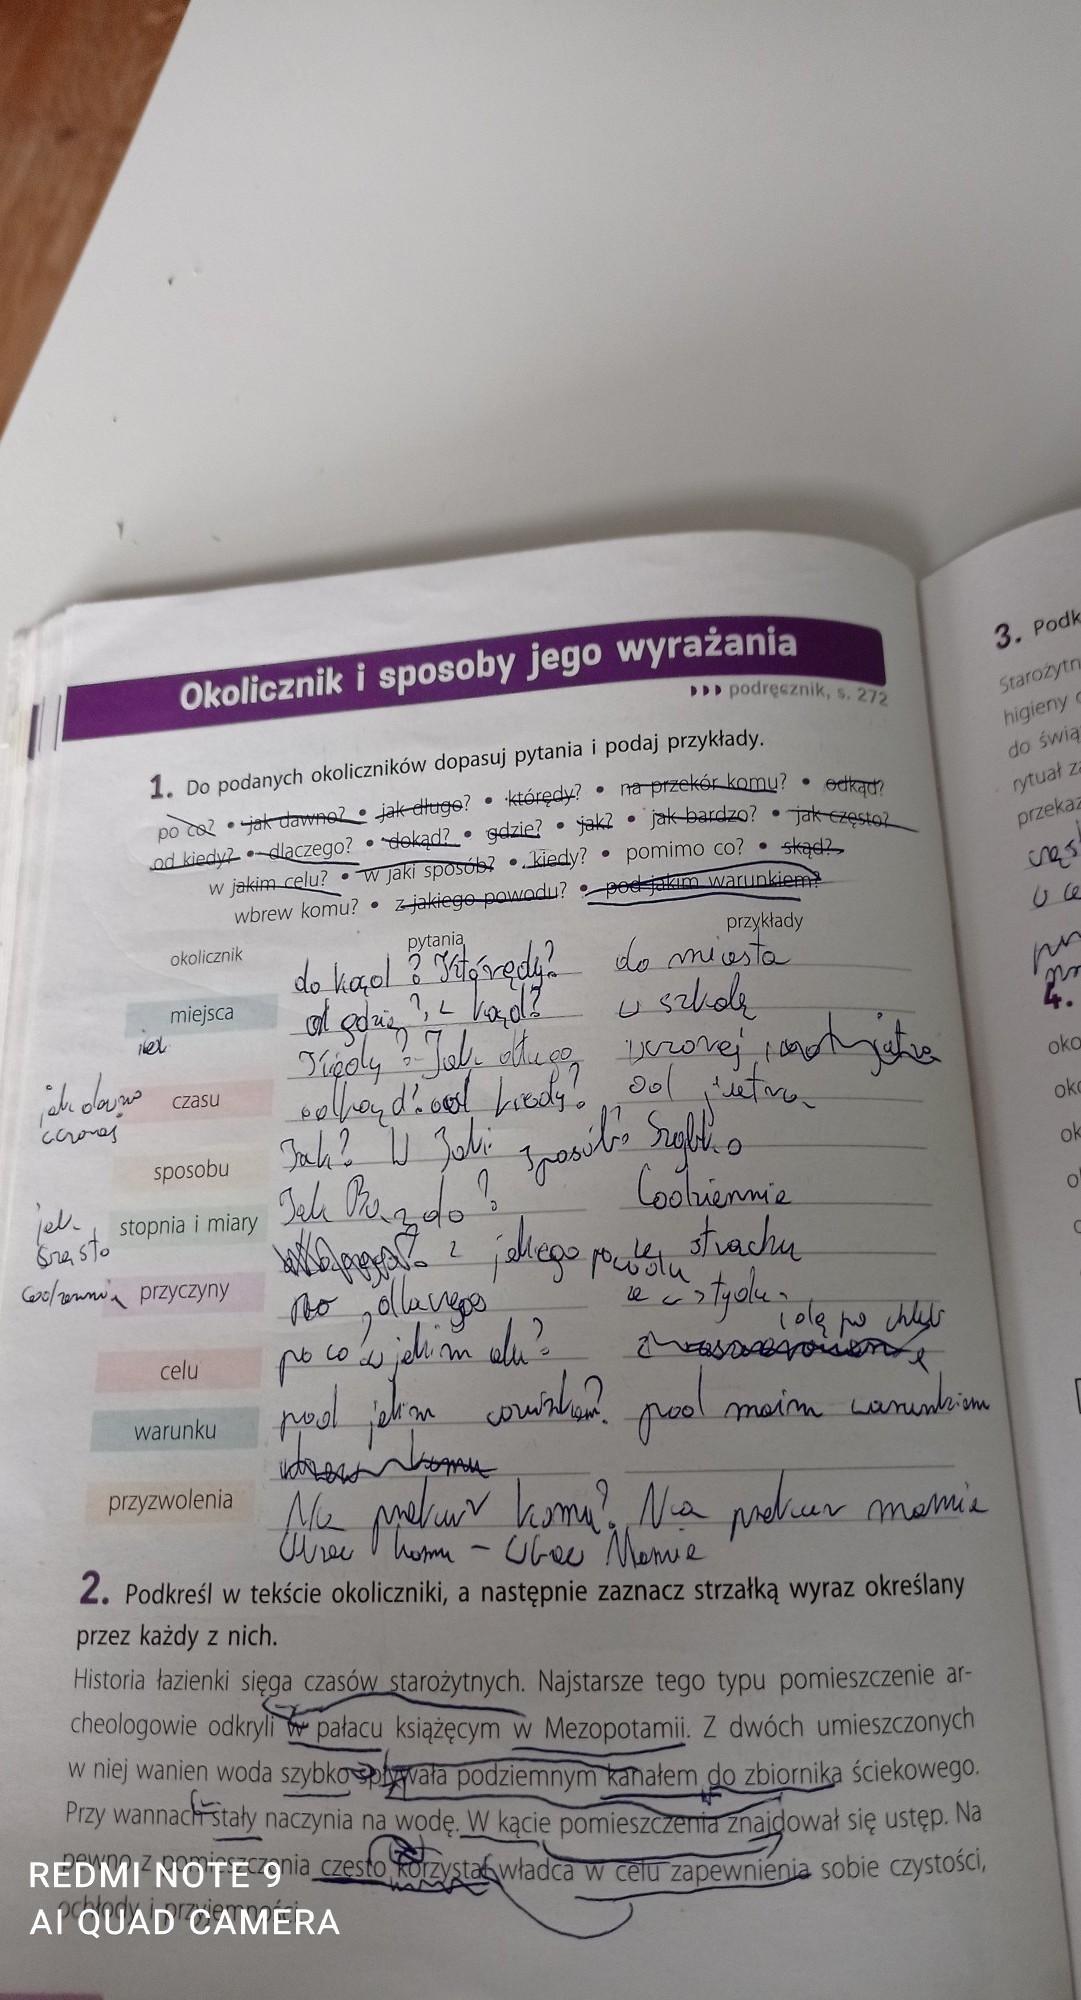 Okolicznik i sposoby jego wyrażania
podręcznik, s. 272
1. Do podanych okoliczników dopasuj pytania i podaj przykłady.
po co? • jak dawno? • jak długo? • którędy? • na przekór komu? • odkąd?
od kiedy? • dlaczego? • dokąd? • gdzie? • jak? • jak bardzo? • jak często?
w jakim celu? • w jaki sposób? • kiedy? • pomimo co? • skąd?
wbrew komu? • z jakiego powodu? • pod jakim warunkiem?
okolicznik pytania przykłady
do kąd? Którędy? do miasta
miejsca gdzie?, kąd? w szkole
Kiedy? Jak długo
jak dawno czasu od kiedy? od jutra
sposobu Jak? W Jaki sposób? Szybko
stopnia i miary Jak Bardzo? Codziennie
jak często z jakiego powodu ze strachu
codziennie przyczyny dlaczego ze wstydu
idę po chleb
celu po co w jakim celu?
warunku pod jakim warunkiem? pod moim warunkiem
wbrew komu
przyzwolenia Na przekur komu? Na przekur mamie
Wbrew komu - Wbrew Mamie
2. Podkreśl w tekście okoliczniki, a następnie zaznacz strzałką wyraz określany
przez każdy z nich.
Historia łazienki sięga czasów starożytnych. Najstarsze tego typu pomieszczenie ar-
cheologowie odkryli w pałacu książęcym w Mezopotamii. Z dwóch umieszczonych
w niej wanien woda szybko spływała podziemnym kanałem do zbiornika ściekowego.
Przy wannach stały naczynia na wodę. W kącie pomieszczenia znajdował się ustęp. Na
pewno z pomieszczenia często korzystał władca w celu zapewnienia sobie czystości,
ochłody i przyjemności.
3. Podk
Starożytn
higieny
do świą
rytuał za
przekaz
4.
oko
oko
ok
REDMI NOTE 9
AI QUAD CAMERA